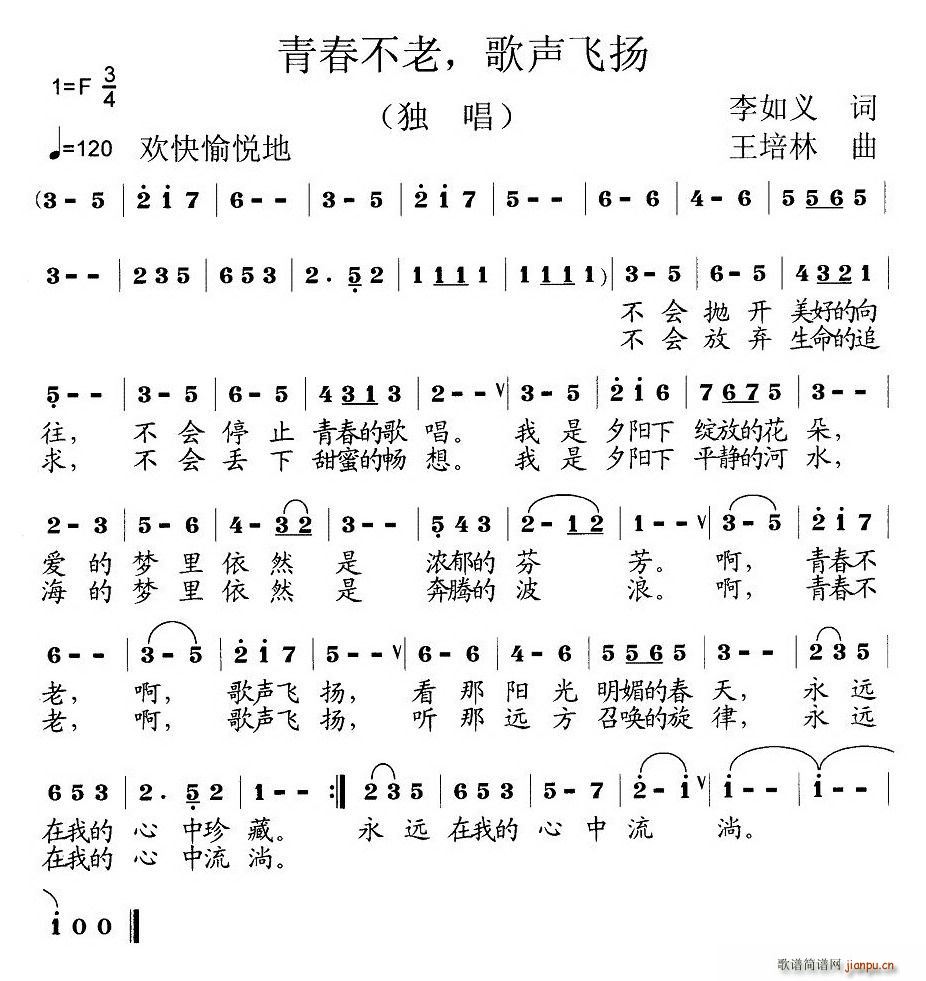 青春不老，歌声飞扬
1=F 3/4
（独 唱）
李如义 词
♩=120 欢快愉悦地
王培林 曲
(3 - 5 | 2̇ 1̇ 7 | 6 - - | 3 - 5 | 2̇ 1̇ 7 | 5 - - | 6 - 6 | 4 - 6 | 5 5 6 5 |
3 - - | 2 3 5 | 6 5 3 | 2 . 5̣ 2 | 1 1 1 1 | 1 1 1 1 ) | 3 - 5 | 6 - 5 | 4 3 2 1 |
不 会 抛 开 美好的向
不 会 放 弃 生命的追
5̣ - - | 3 - 5 | 6 - 5 | 4 3 1 3 | 2 - - ∨ | 3 - 5 | 2̇ 1̇ 6 | 7 6 7 5 | 3 - - |
往， 不 会 停 止 青春的歌 唱。 我 是 夕阳下 绽放的花 朵，
求， 不 会 丢 下 甜蜜的畅 想。 我 是 夕阳下 平静的河 水，
2 - 3 | 5 - 6 | 4 - 3 2 | 3 - - | 5̣ 4 3 | 2 - 1 2 | 1 - - ∨ | 3 - 5 | 2̇ 1̇ 7 |
爱 的 梦 里 依 然 是 浓郁的 芬 芳。 啊， 青春不
海 的 梦 里 依 然 是 奔腾的 波 浪。 啊， 青春不
6 - - | 3 - 5 | 2̇ 1̇ 7 | 5 - - ∨ | 6 - 6 | 4 - 6 | 5 5 6 5 | 3 - - | 2 3 5 |
老， 啊， 歌声飞 扬， 看 那 阳 光 明媚的春 天， 永 远
老， 啊， 歌声飞 扬， 听 那 远 方 召唤的旋 律， 永 远
6 5 3 | 2 . 5̣ 2 | 1 - - :‖ 2 3 5 | 6 5 3 | 5 - 7 | 2̇ - 1̇ ∨ | 1̇ - - | 1̇ - - |
在我的 心 中珍 藏。 永 远 在我的 心 中 流 淌。
在我的 心 中流 淌。
1̇ 0 0 ‖
歌谱简谱网 jianpu.cn